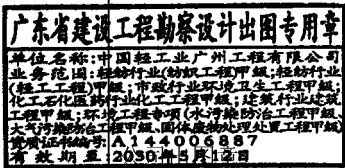 广东省建设工程勘察设计出图专用章
单位名称:中国轻工业广州工程有限公司
业务范围:轻纺行业(纺织工程)甲级;轻纺行业
(轻工工程)甲级;市政行业环境卫生工程甲级;
化工石化医药行业化工工程甲级;建筑行业建筑
工程甲级;环境工程专项(水污染防治工程甲级、
大气污染防治工程甲级、固体废物处理处置工程甲级)
资质证书编号:A144006887
有效期至:2030年5月12日